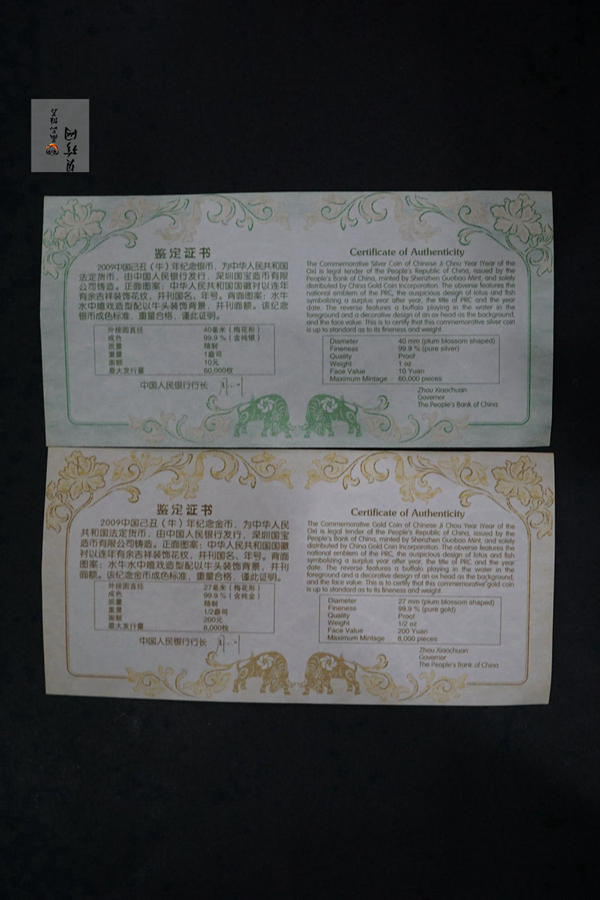 鉴定证书
2009中国己丑（牛）年纪念银币，为中华人民共和国
法定货币，由中国人民银行发行，深圳国宝造币有限
公司铸造。正面图案：中华人民共和国国徽衬以连年
有余吉祥装饰花纹，并刊国名、年号。背面图案：水牛
水中嬉戏造型配以牛头装饰背景，并刊面额。该纪念
银币成色标准、重量合格，谨此证明。
外接圆直径 40毫米（梅花形）
成色 99.9%（含纯银）
质量 精制
重量 1盎司
面额 10元
最大发行量 60,000枚
中国人民银行行长
Certificate of Authenticity
The Commemorative Silver Coin of Chinese Ji Chou Year (Year of the
Ox) is legal tender of the People's Republic of China, issued by the
People's Bank of China, minted by Shenzhen Guobao Mint, and solely
distributed by China Gold Coin Incorporation. The obverse features the
national emblem of the PRC, the auspicious design of lotus and fish
symbolizing a surplus year after year, the title of PRC and the year
date. The reverse features a buffalo playing in the water in the
foreground and a decorative design of an ox head as the background,
and the face value. This is to certify that this commemorative silver coin
is up to standard as to its fineness and weight.
Diameter 40 mm (plum blossom shaped)
Fineness 99.9 % (pure silver)
Quality Proof
Weight 1 oz
Face Value 10 Yuan
Maximum Mintage 60,000 pieces
Zhou Xiaochuan
Governor
The People's Bank of China
鉴定证书
2009中国己丑（牛）年纪念金币，为中华人民
共和国法定货币，由中国人民银行发行，深圳国宝
造币有限公司铸造。正面图案：中华人民共和国国徽
衬以连年有余吉祥装饰花纹，并刊国名、年号。背面
图案：水牛水中嬉戏造型配以牛头装饰背景，并刊
面额。该纪念金币成色标准、重量合格，谨此证明。
外接圆直径 27毫米（梅花形）
成色 99.9%（含纯金）
质量 精制
重量 1/2盎司
面额 200元
最大发行量 8,000枚
中国人民银行行长
Certificate of Authenticity
The Commemorative Gold Coin of Chinese Ji Chou Year (Year of the
Ox) is legal tender of the People's Republic of China, issued by the
People's Bank of China, minted by Shenzhen Guobao Mint, and solely
distributed by China Gold Coin Incorporation. The obverse features the
national emblem of the PRC, the auspicious design of lotus and fish
symbolizing a surplus year after year, the title of PRC and the year
date. The reverse features a buffalo playing in the water in the
foreground and a decorative design of an ox head as the background,
and the face value. This is to certify that this commemorative gold coin
is up to standard as to its fineness and weight.
Diameter 27 mm (plum blossom shaped)
Fineness 99.9 % (pure gold)
Quality Proof
Weight 1/2 oz
Face Value 200 Yuan
Maximum Mintage 8,000 pieces
Zhou Xiaochuan
Governor
The People's Bank of China